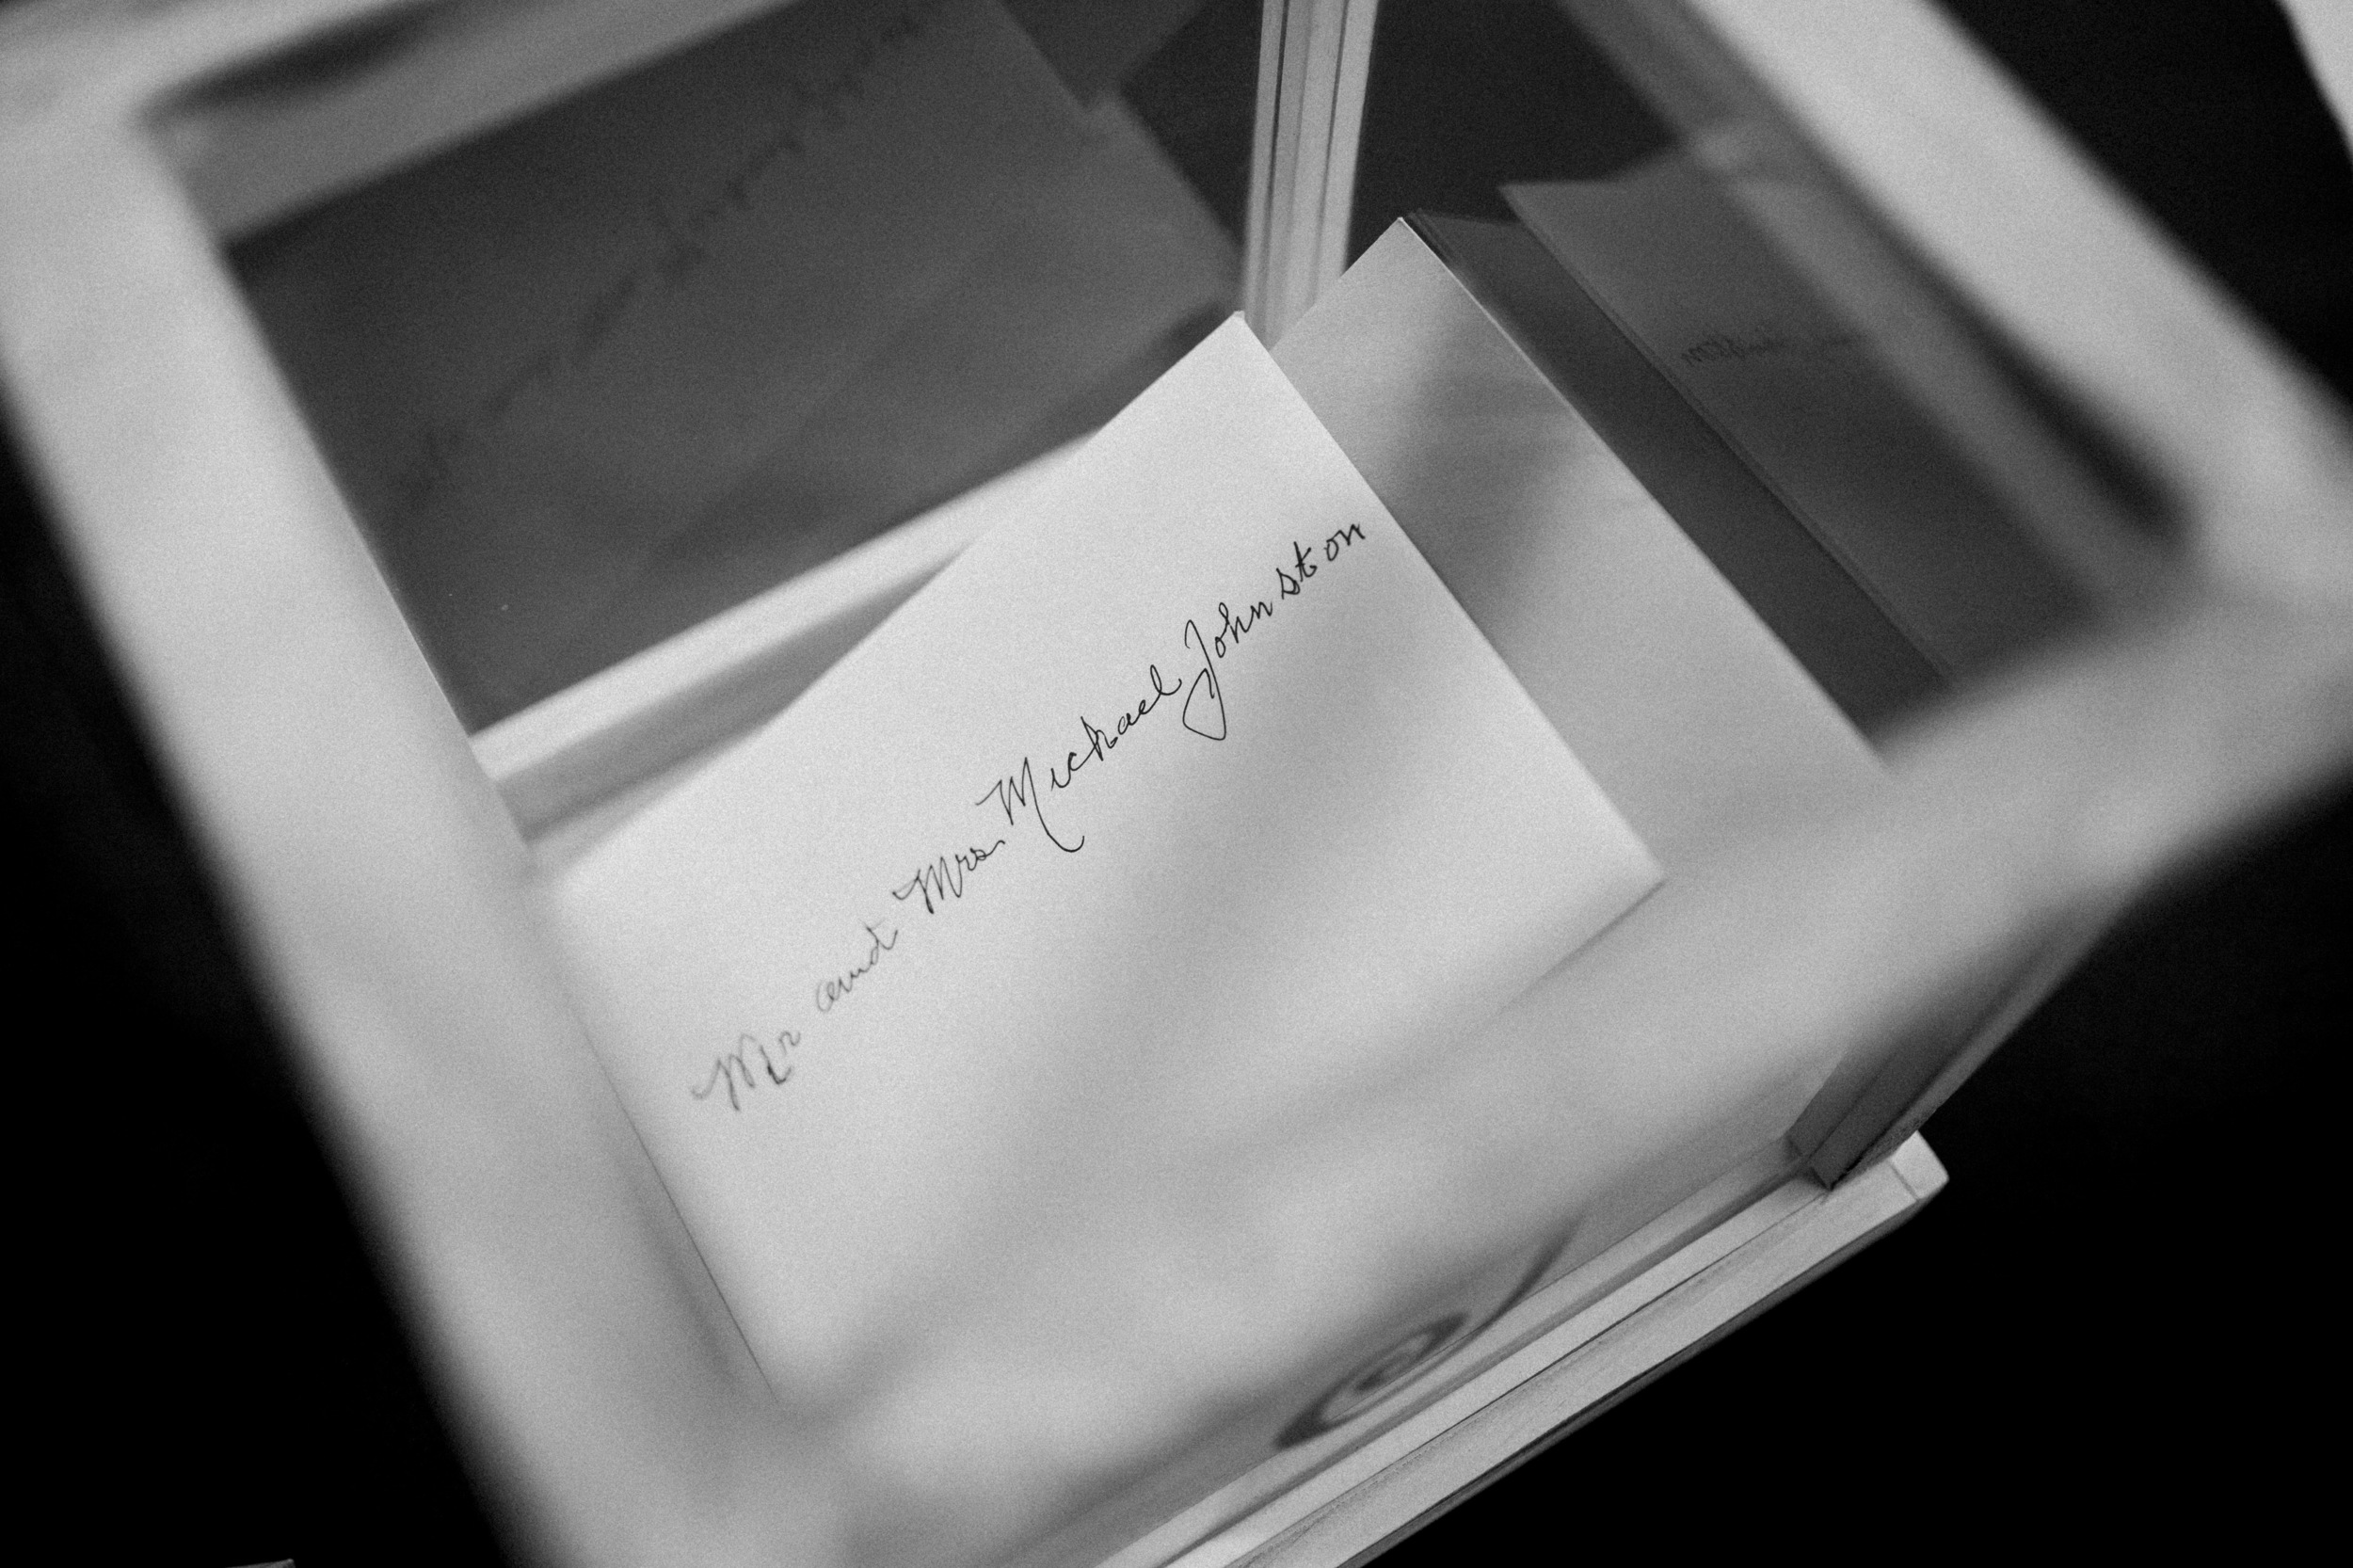 Mr and Mrs. Michael Johnston